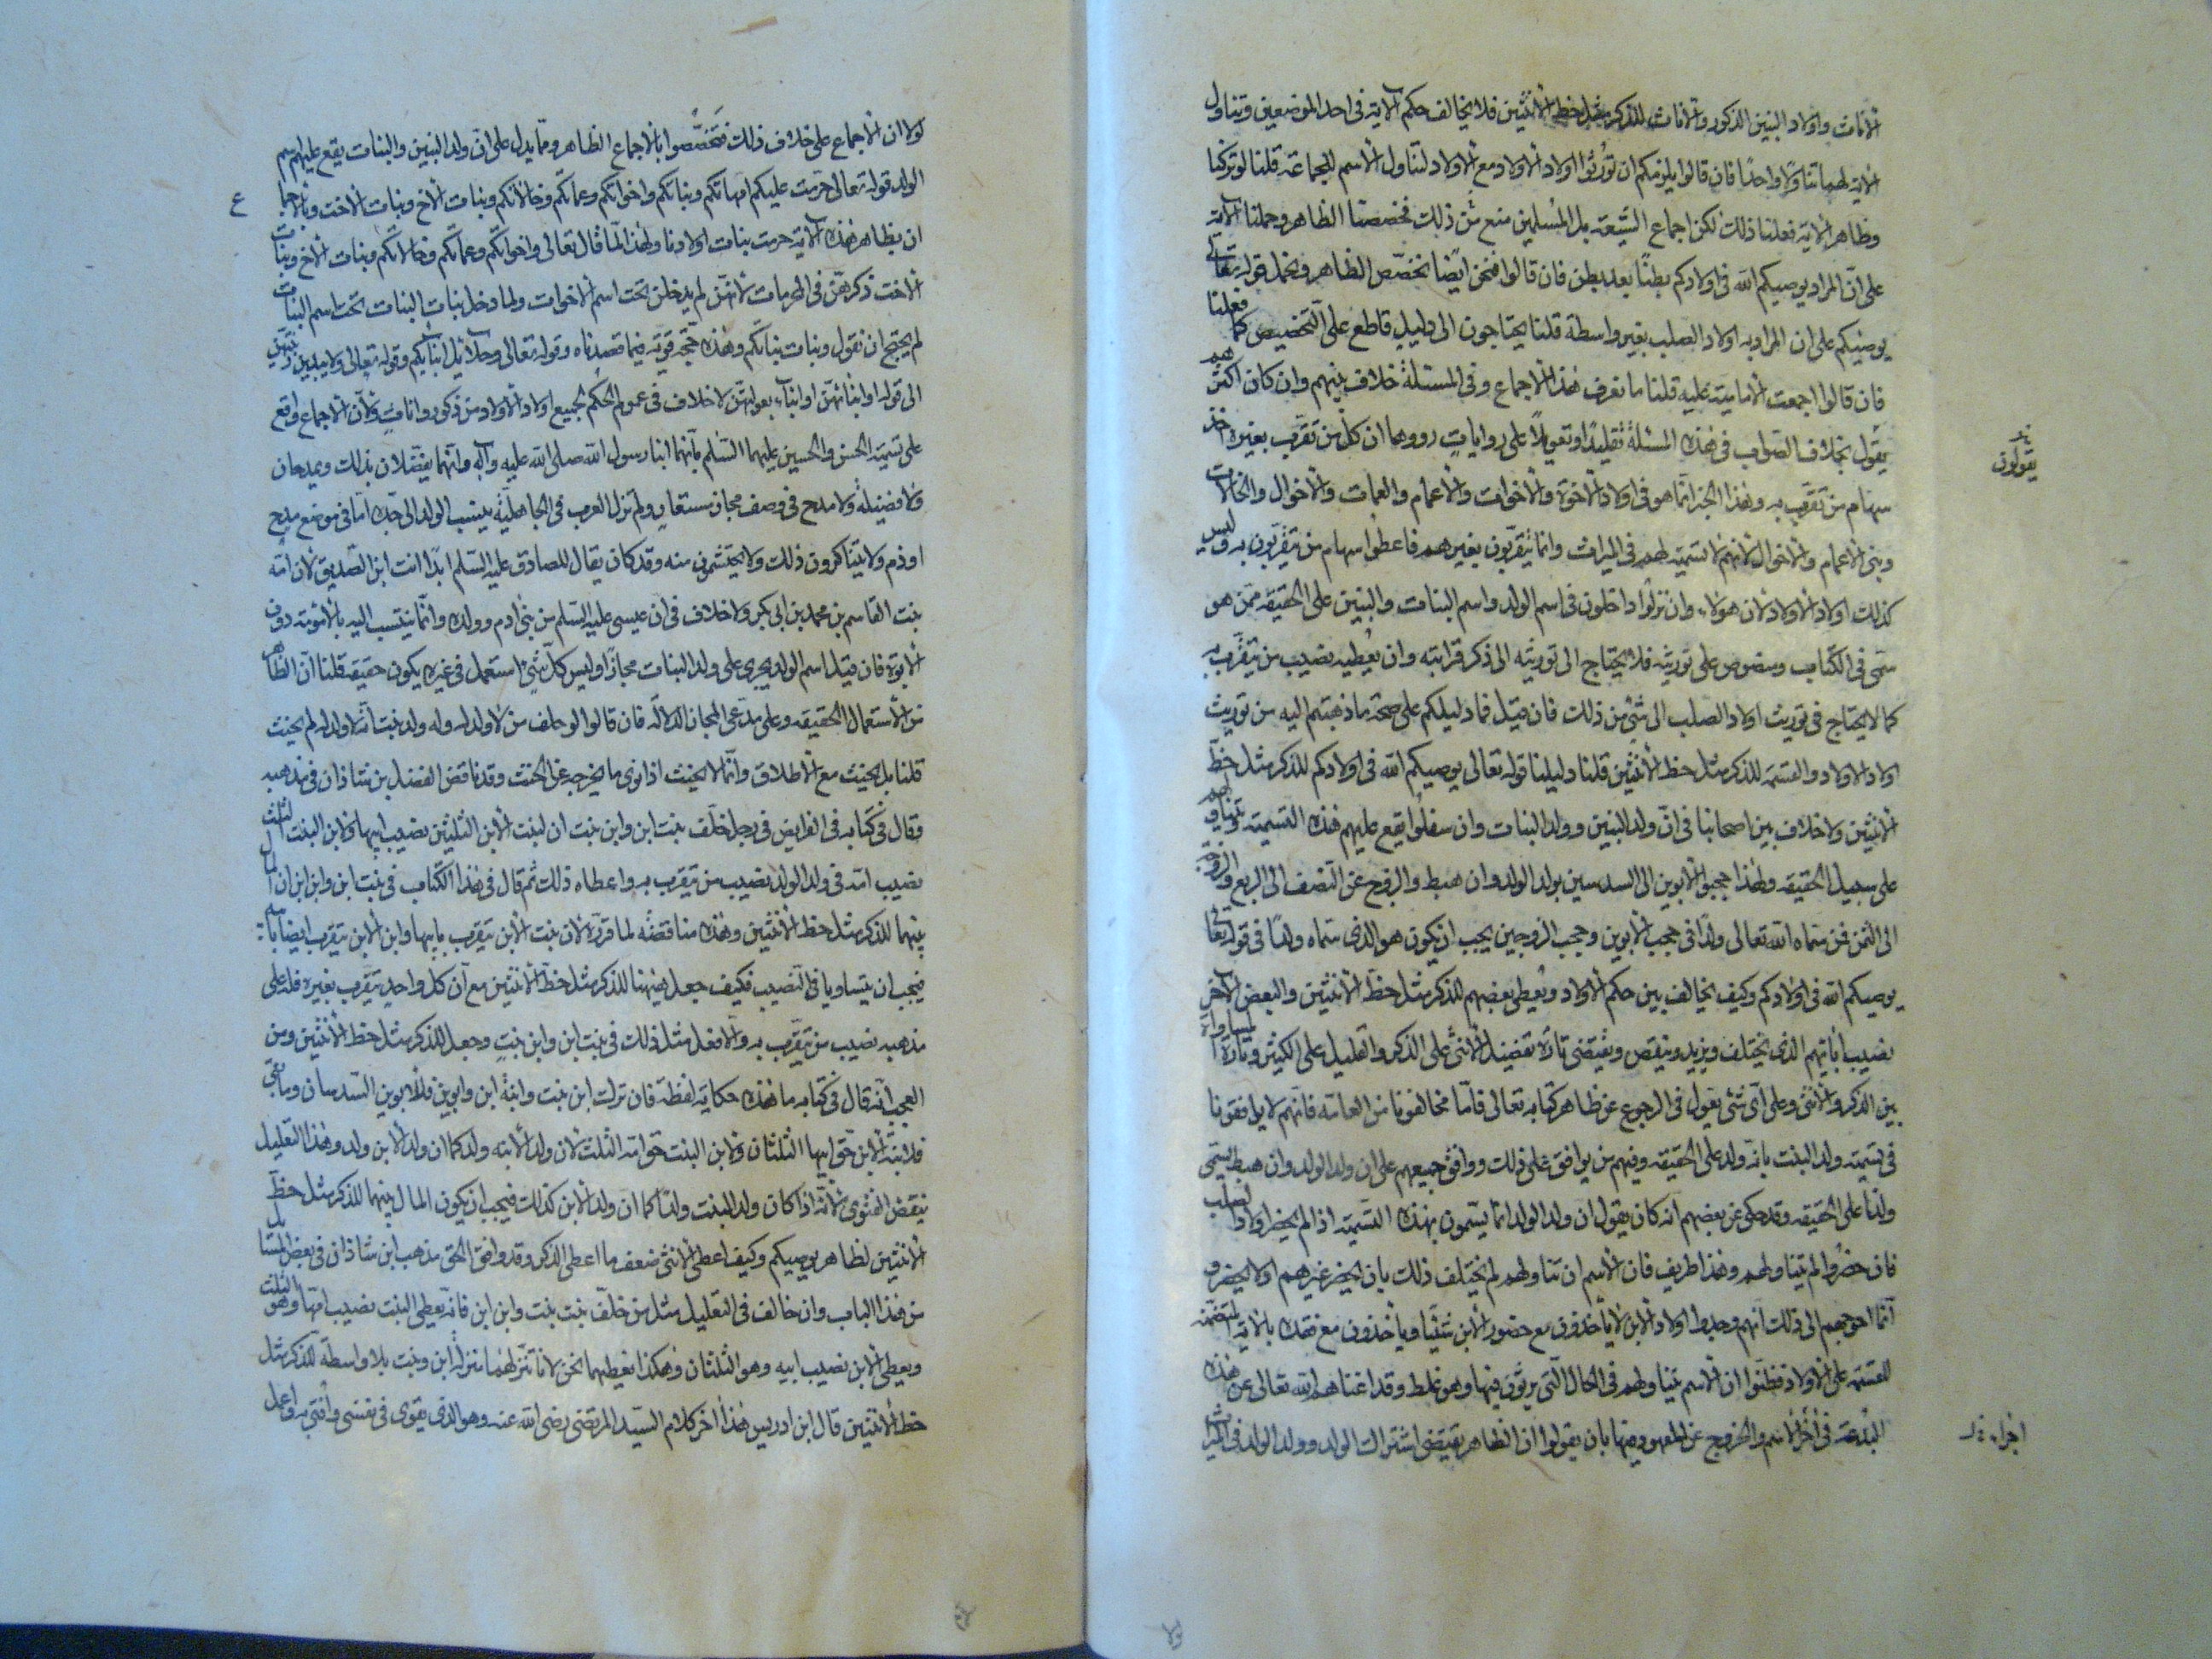 الاناث واولاد البنين الذكور والاناث للذكر مثل حظ الانثيين فلا يخالف حكم الاية فى احد الموضعين وتناول
الاية لهما تناولا واحدا فان قالوا يلزمكم ان تورثوا اولاد الاولاد مع الاولاد لتناول الاسم للجماعة قلنا لو تركنا
وظاهر الاية فعلنا ذلك لكن اجماع الشيعة بل المسلمين منع من ذلك فخصصنا الظاهر وحملنا الاية
على ان المراد يوصيكم الله فى اولادكم بطنا بعد بطن فان قالوا فنحن ايضا نخصص الظاهر ونحمل قوله تعالى
يوصيكم على ان المراد به اولاد الصلب بغير واسطة قلنا يحتاجون الى دليل قاطع على التخصيص كما فعلنا
فان قالوا اجمعت الامامية عليه قلنا ما نعرف هذا الاجماع وفى المسئلة خلاف بينهم وان كان اكثرهم
يقول بخلاف الصواب فى هذه المسئلة تقليدا وتعويلا على روايات رووها ان كل من تقرب بغيره اخذ
سهام من تقرب به وهذا الخبر انما هو فى اولاد الاخوة والاخوات والاعمام والعمات والاخوال والخالات
وبنى الاعمام والاخوال لانهم لا تسمية لهم فى الميراث وانما يتقربون بغيرهم فاعطوا سهام من يتقربون به وليس
كذلك اولاد الاولاد لان هؤلاء وان نزلوا داخلون فى اسم الولد واسم البنات والبنين على الحقيقه ممن هو
سمى فى الكتاب ومنصوص على توريثه فلا يحتاج الى توريثه الى ذكر قرابته وان يعطيه نصيب من يتقرب به
كما لا يحتاج فى توريث اولاد الصلب الى شئ من ذلك فان قيل فما دليلكم على صحة ما ذهبتم اليه من توريث
اولاد الاولاد والقسمة للذكر مثل حظ الانثيين قلنا دليلنا قوله تعالى يوصيكم الله فى اولادكم للذكر مثل حظ
الانثيين ولا خلاف بين اصحابنا فى ان ولد البنين وولد البنات وان سفلوا يقع عليهم هذه التسمية وتتناولهم
على سبيل الحقيقه ولهذا حجبوا الابوين الى السدسين بولد الولد وان هبط والزوج عن النصف الى الربع والزوجة
الى الثمن فمن سماه الله تعالى ولدا فى حجب الابوين وحجب الزوجين يجب ان يكون هو الذى سماه ولدا فى قوله تعالى
يوصيكم الله فى اولادكم وكيف يخالف بين حكم الاولاد ويعطى بعضهم للذكر مثل حظ الانثيين والبعض الاخر
نصيب ابائهم الذى يختلف ويزيد وينقص ويقتضى تارة تفضيل الانثى على الذكر والقليل على الكثير وتارة المساواة
بين الذكر والانثى وعلى اى شئ يعول فى الرجوع عن ظاهر كتابه تعالى فاما مخالفونا من العامة فانهم لا يوافقونا
فى تسمية ولد البنت بانه ولد على الحقيقه وفيهم من يوافق على ذلك ووافق جميعهم على ان ولد الولد وان هبط يسمى
ولدا على الحقيقه وقد حكى عن بعضهم انه كان يقول ان ولد الولد انما يسمون بهذه التسمية اذا لم يحضر اولاد الصلب
فان حضروا لم يتناولهم وهذا طريف فان الاسم ان تناولهم لم يختلف ذلك بان يحضر غيرهم او لا يحضر و
انما احوجهم الى ذلك انهم وجدوا اولاد الابن لا ياخذون مع حضور الابن شيئا وياخذون مع فقده بالاية المتضمنة
للقسمة على الاولاد فظنوا ان الاسم يتناولهم فى الحال التى يرثون فيها وهو غلط وقد اغناهم الله تعالى عن هذه
البدعة فى الاسم والخروج عن المعهود فيها بان يقولوا ان الظاهر يقتضى اشتراك الولد وولد الولد فى الميراث
يقولون
لولا ان الاجماع على خلاف ذلك فتخصصوا بالاجماع الظاهر ومما يدل على ان ولد البنين والبنات يقع عليهم اسم
الولد قوله تعالى حرمت عليكم امهاتكم وبناتكم واخواتكم وعماتكم وخالاتكم وبنات الاخ وبنات الاخت وبالاجماع
ان بظاهر هذه الاية حرمت بنات اولادنا ولهذا لما قال تعالى واخواتكم وعماتكم وخالاتكم وبنات الاخ وبنات
الاخت ذكرهن فى المحرمات لانهن لم يدخلن تحت اسم الاخوات ولما دخل بنات البنات تحت اسم البنات
لم يحتج ان تقول وبنات بناتكم وهذه حجة قوية فيما قصدناه وقوله تعالى وحلائل ابنائكم وقوله تعالى ولا يبدين زينتهن
الى قوله او ابنائهن او ابناء بعولتهن لا خلاف فى عموم الحكم لجميع اولاد الاولاد من ذكور واناث ولان الاجماع واقع
على تسمية الحسن والحسين عليهما السلام بانهما ابنا رسول الله صلى الله عليه وآله وانهما يفضلان بذلك ويمدحان
ولا فضيلة ولا مدح فى وصف مجاز مستعار ولم تزل العرب فى الجاهلية ينسب الولد الى جده اما فى موضع مدح
او ذم ولا يتناكرون ذلك ولا يحتشمون منه وقد كان يقال للصادق عليه السلم ابدا انت ابن الصديق لان امه
بنت القاسم بن محمد بن ابى بكر ولا خلاف فى ان عيسى عليه السلم من بنى ادم وولده وانما ينتسب اليه بالامومة دون
الابوة فان قيل اسم الولد يجرى على ولد البنات مجازا وليس كل شئ استعمل فى غيره يكون حقيقة قلنا ان الظاهر
من الاستعمال الحقيقه وعلى مدعى المجاز الدلالة فان قالوا لو حلف من لا ولد له وله ولد بنت انه لا ولد له لم يحنث
قلنا بل يحنث مع الاطلاق وانما لا يحنث اذا نوى ما يخرجه عن الحنث وقد ناقض الفضل بن شاذان فى مذهبه
وقال فى كتابه فى الفرايض فى رجل خلف بنت ابن وابن بنت ان لبنت الابن الثلثين نصيب ابيها ولابن البنت الثلث
نصيب امه فى ولد الولد نصيب من يتقرب به واعطاه ذلك ثم قال فى هذا الكتاب فى بنت ابن وابن ابن ان المال
بينهما للذكر مثل حظ الانثيين وهذه مناقضة لما قرره لان بنت الابن يتقرب بابيها وابن الابن يتقرب ايضا بابيه
فيجب ان يتساويا فى النصيب فكيف جعل هيهنا للذكر مثل حظ الانثيين مع ان كل واحد يتقرب بغيره فله على
مذهبه نصيب من يتقرب به والا فعل مثل ذلك فى بنت ابن وابن بنت وجعل للذكر مثل حظ الانثيين ومن
العجب انه قال فى كتابه ما هذه حكاية لفظه فان ترك ابن بنت وابنة ابن وابوين فللابوين السدسان وما بقى
فلابنة الابن حق ابيها الثلثان ولابن البنت حق امه الثلث لان ولد الابنه ولد كما ان ولد الابن ولد وهذا التعليل
ينقض الفتوى لانه اذا كان ولد البنت ولدا كما ان ولد الابن كذلك فيجب ان يكون المال بينهما للذكر مثل حظ
الانثيين لظاهر يوصيكم وكيف اعطى الانثى ضعف ما اعطى الذكر وقد وافق الحق مذهب ابن شاذان فى بعض المسايل
من هذا الباب وان خالف فى التعليل مثل من خلف بنت بنت وابن ابن فانه يعطى البنت نصيب امها وهو الثلث
ويعطى الابن نصيب ابيه وهو الثلثان وهكذا نعطيهما نحن لانا ننزلهما منزلة ابن وبنت بلا واسطة للذكر مثل
حظ الانثيين قال ابن ادريس هذا اخر كلام السيد المرتضى رضى الله عنه وهو الذى يقوى فى نفسى وافتى به واعمل
ع